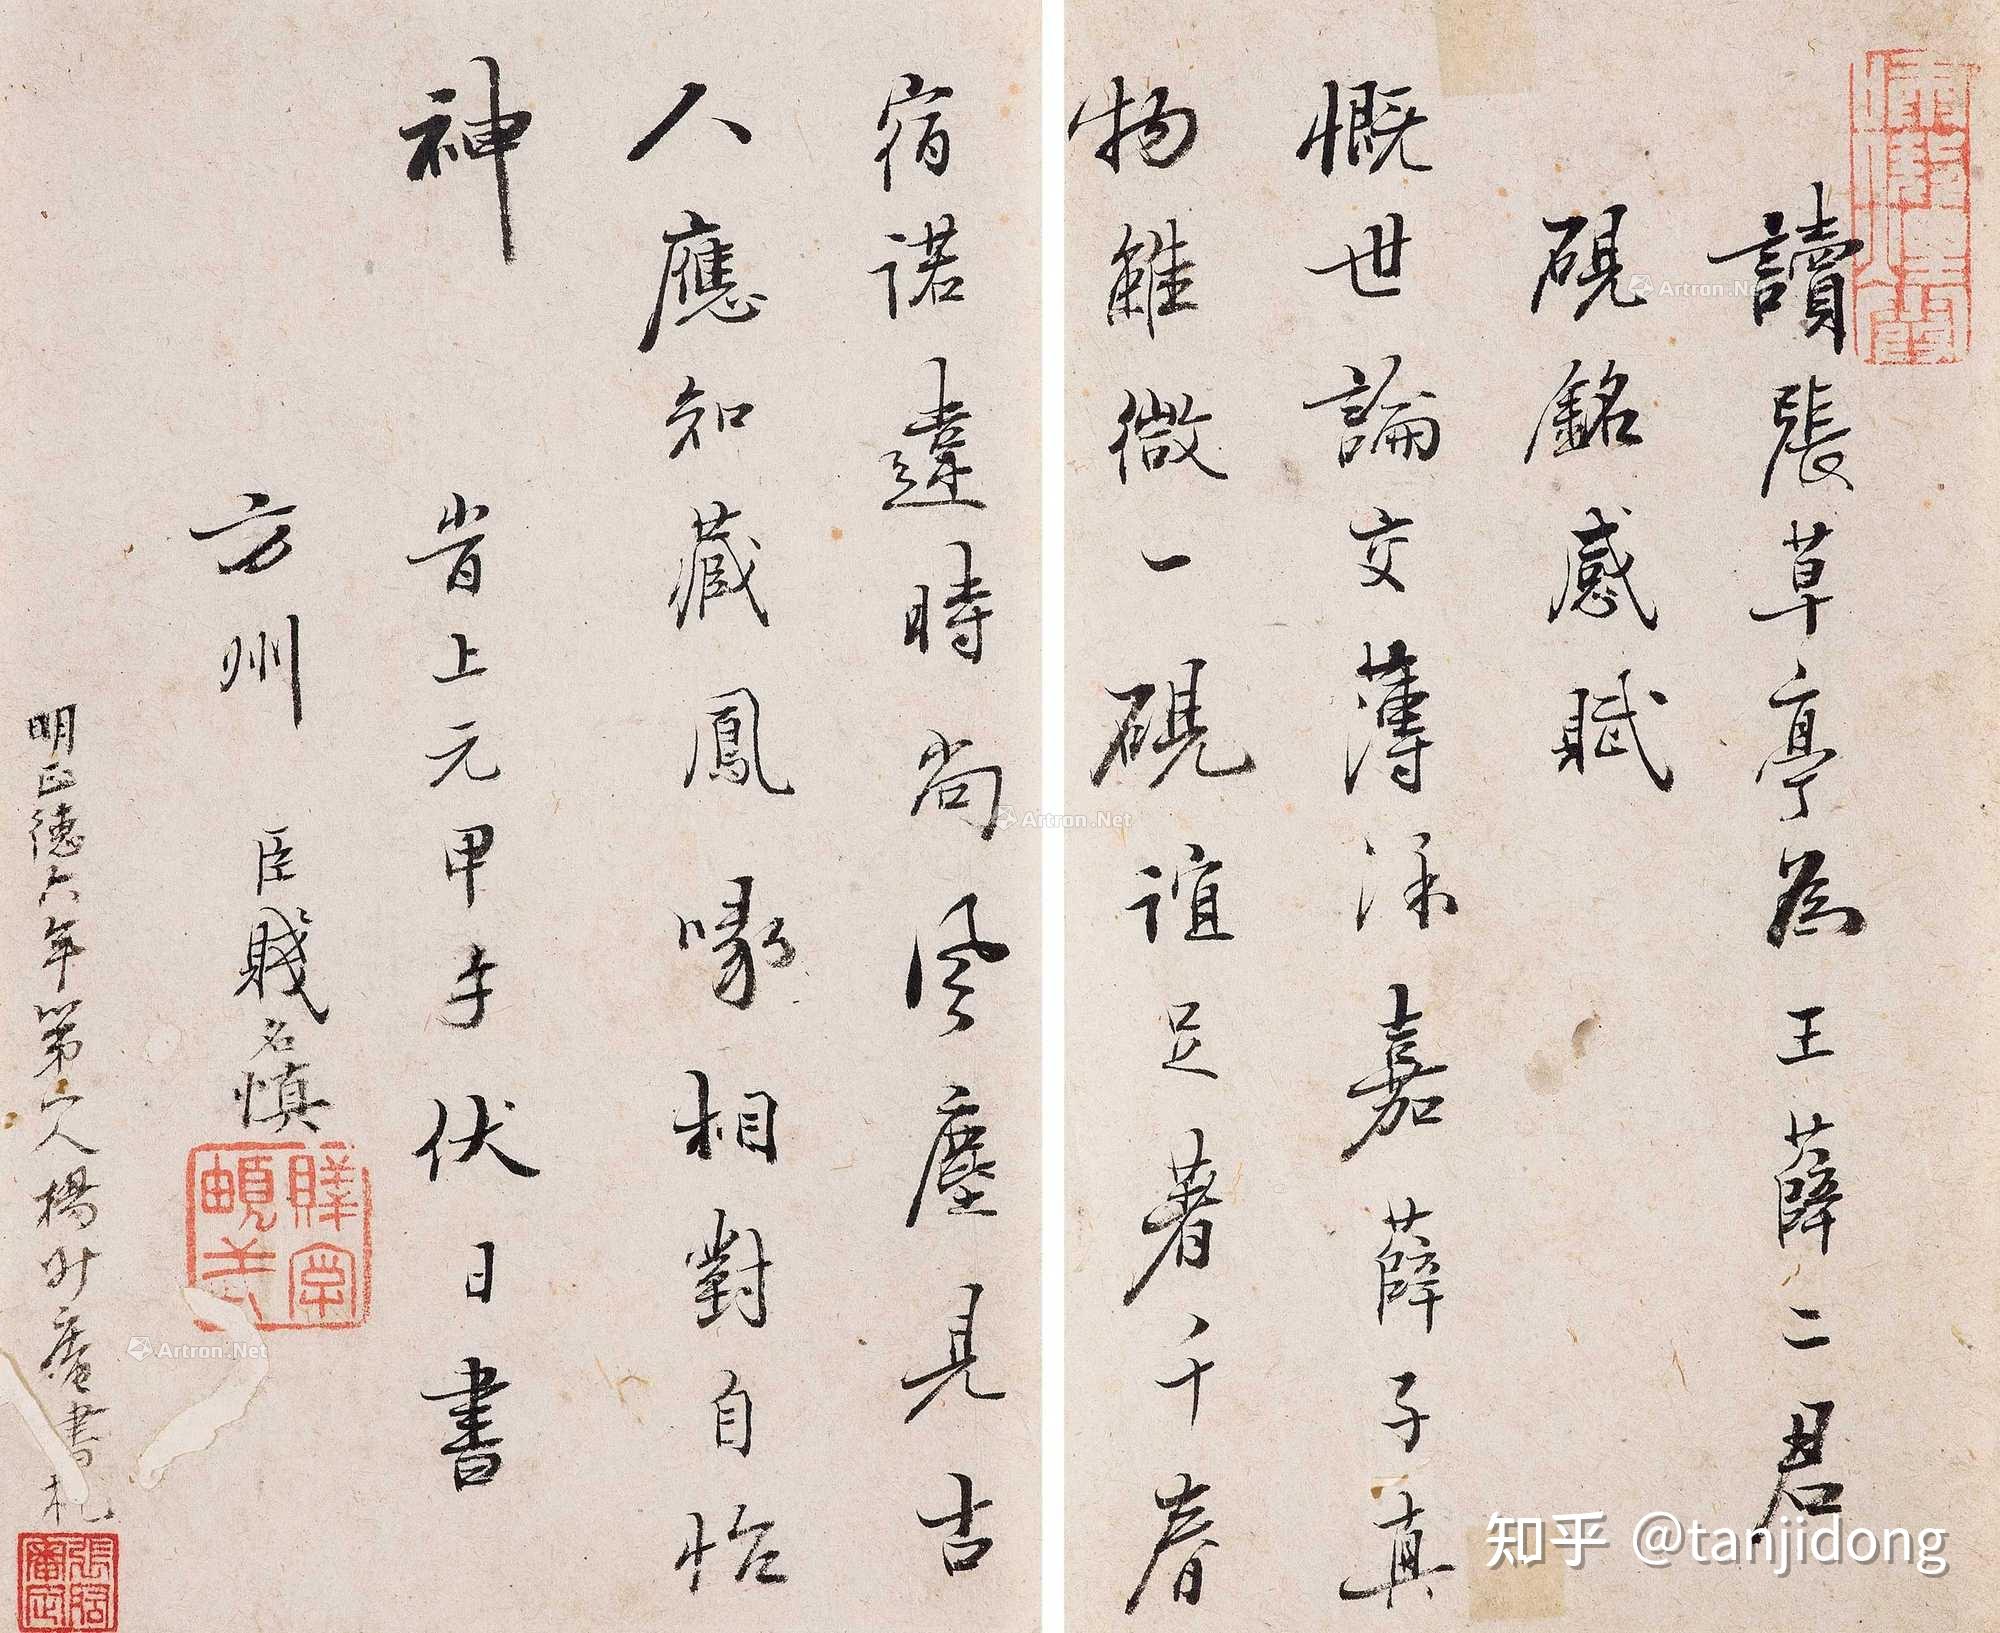 讀張草亭為王薛二君
硯銘感賦
慨世論交薄深嘉薛子真
物雖微一硯誼足著千春
宿諾違時尚風塵見古
人應知藏鳳喙相對自怡
神
昔上元甲子伏日書
方州 臣賤名慎
明正德六年第一人楊升庵書札
知乎 @tanjidong
Artron.Net
Artron.Net
Artron.Net